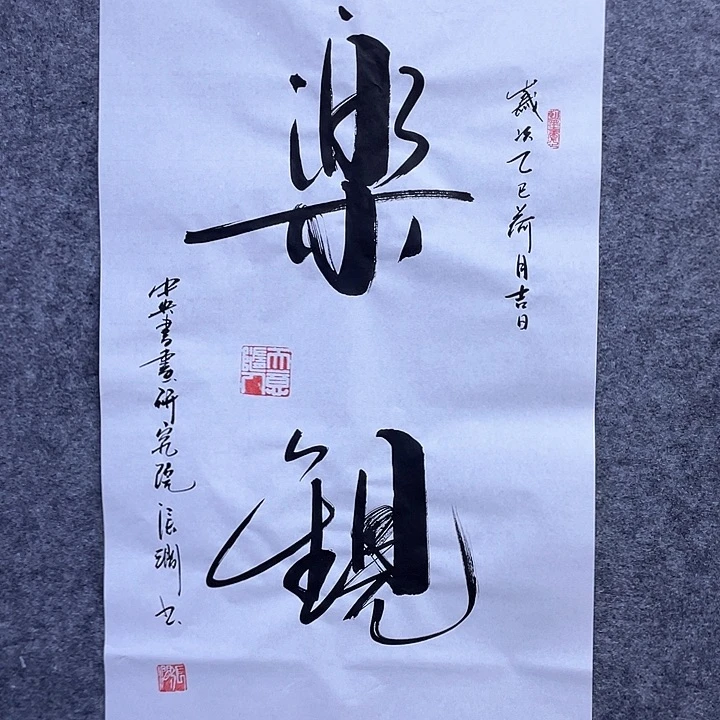 歲次乙巳荷月吉日
樂觀
中央書畫研究院張书